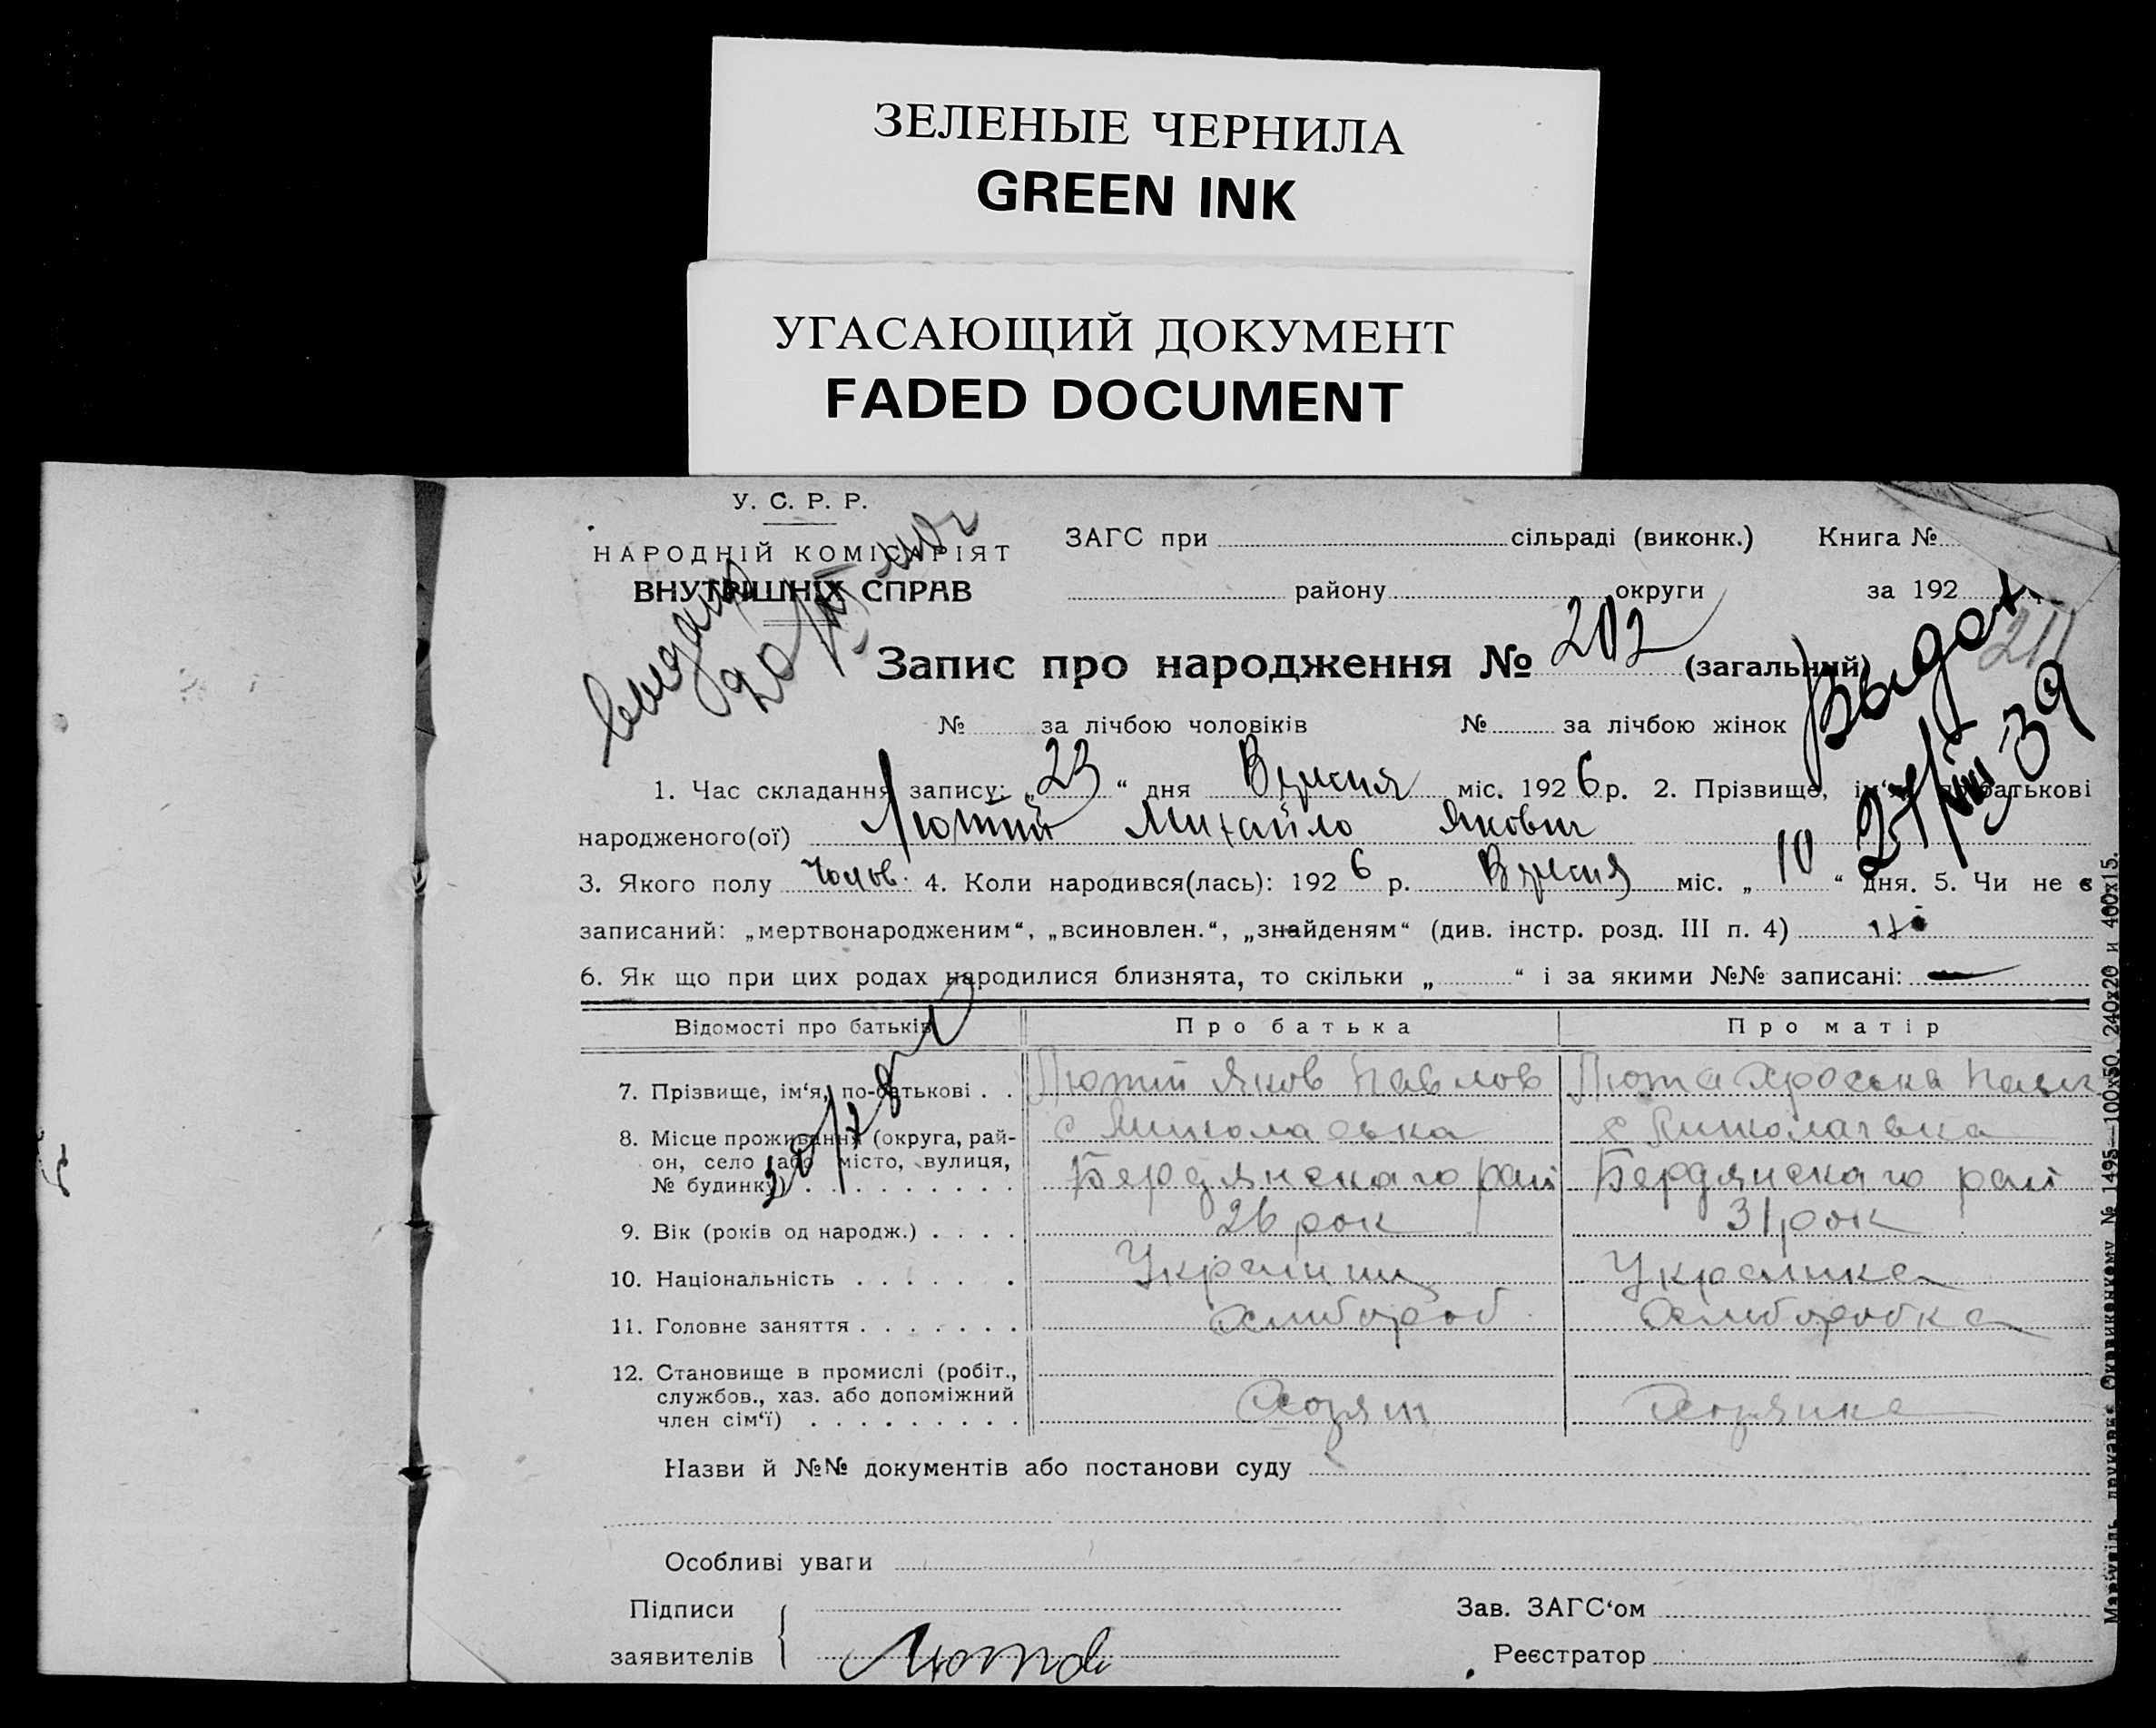 ЗЕЛЕНЫЕ ЧЕРНИЛА
GREEN INK
УГАСАЮЩИЙ ДОКУМЕНТ
FADED DOCUMENT
У. С. Р. Р.
НАРОДНІЙ КОМІСАРІЯТ
ВНУТРІШНІХ СПРАВ
ЗАГС при сільраді (виконк.) Книга №
району округи за 192
Запис про народження № 202 (загальний)
211
Выдан
39
№ за лічбою чоловіків № за лічбою жінок
1. Час складання запису: „23“ дня Вересня міс. 1926 р. 2. Прізвище, ім'я, по-батькові
народженого(ої) Лютий Михайло Якович
3. Якого полу Чолов. 4. Коли народився(лась): 1926 р. Вересня міс. „10“ дня. 5. Чи не є
записаний: „мертвонародженим“, „всиновлен.“, „знайденям“ (див. інстр. розд. III п. 4) ні
6. Як що при цих родах народилися близнята, то скільки „ “ і за якими №№ записані: —
Відомості про батьків Про батька Про матір
7. Прізвище, ім'я, по-батькові . . Лютий Яков Павлов Люта
8. Місце проживання (округа, рай-
он, село або місто, вулиця,
№ будинку)
с с
Бердянскаго рай Бердянскаго рай
9. Вік (років од народж.) . . . . 26 рок 31 рок
10. Національність . . . . . . . Українец Українка
11. Головне заняття . . . . . . . Хлибороб Хлиборобка
12. Становище в промислі (робіт.,
службов., хаз. або допоміжний
член сім'ї) . . . . . . . . . Хозяин Хозяика
Назви й №№ документів або постанови суду
Особливі уваги
Підписи
заявителів
Зав. ЗАГС'ом
Реєстратор
Маріупіль, друкарня Окрвиконкому № 1495—100х50, 240х20 и 400х15.